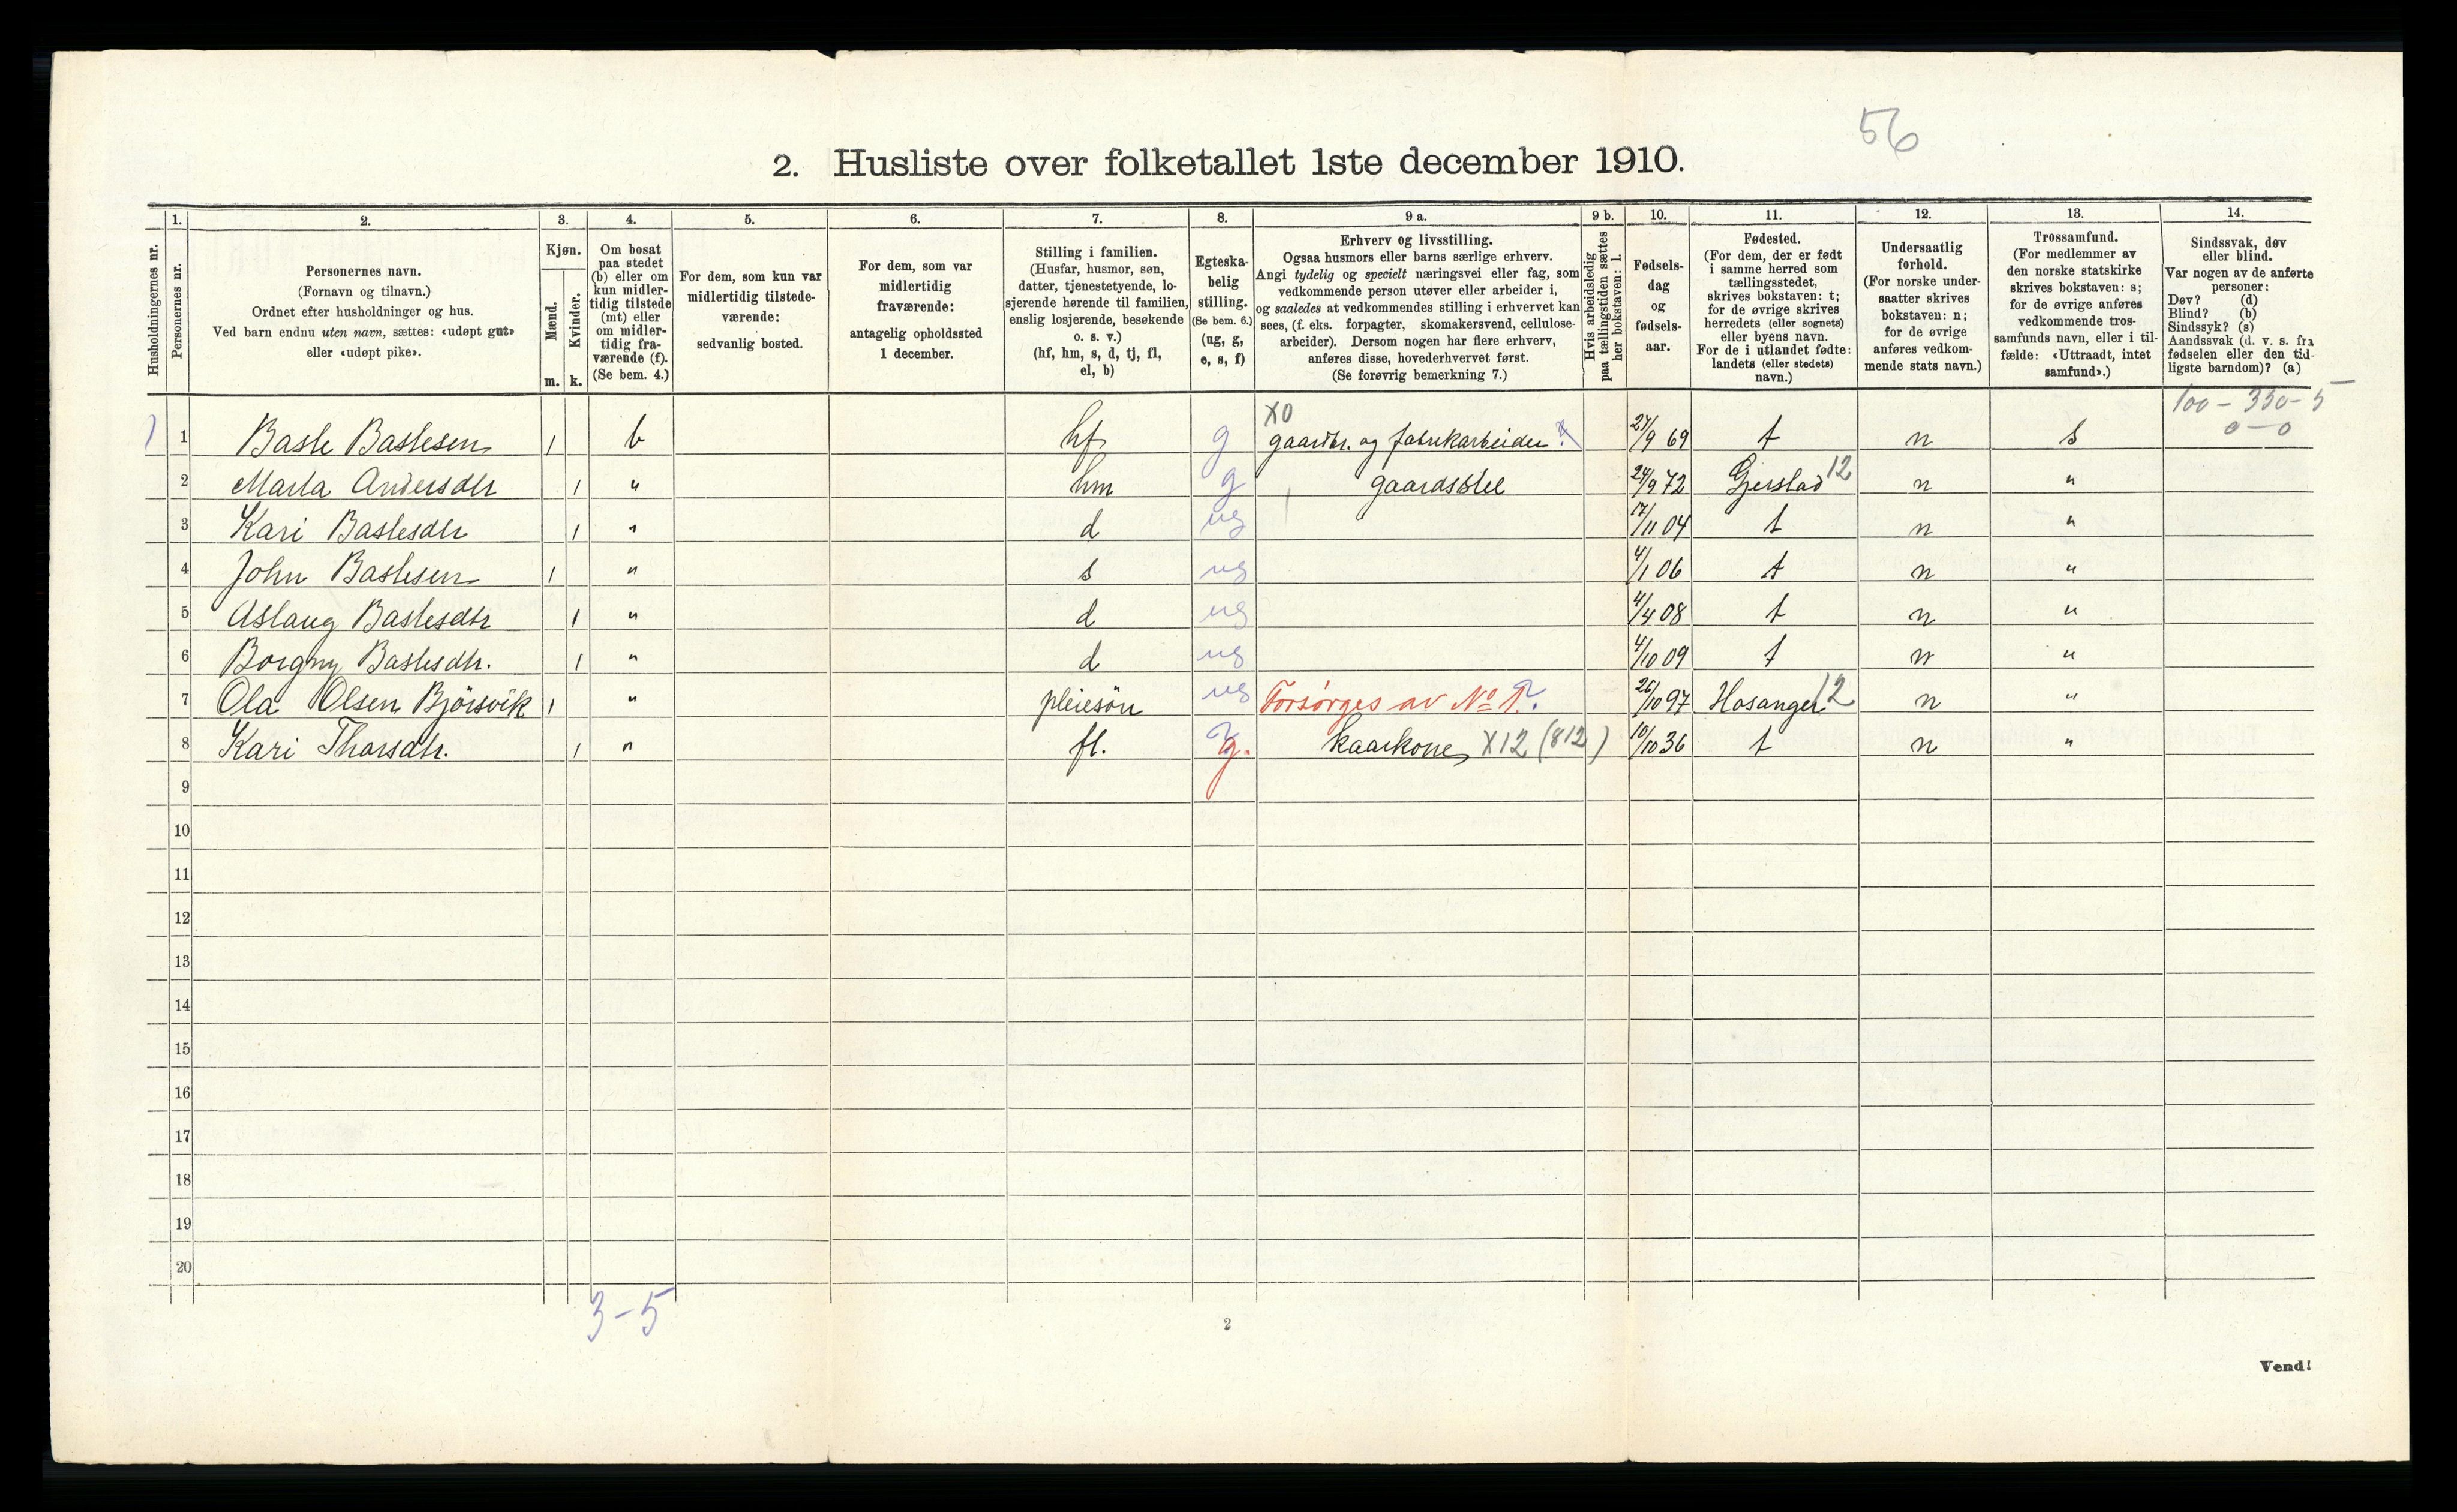 56
2. Husliste over folketallet 1ste december 1910.
Husholdningernes nr.
1.
Personernes nr.
2.
Personernes navn.
(Fornavn og tilnavn.)
Ordnet efter husholdninger og hus.
Ved barn endnu uten navn, sættes: «udøpt gut»
eller «udøpt pike».
3.
Kjøn.
Mænd.
m.
Kvinder.
k.
4.
Om bosat
paa stedet
(b) eller om
kun midler-
tidig tilstede
(mt) eller
om midler-
tidig fra-
værende (f).
(Se bem. 4.)
5.
For dem, som kun var
midlertidig tilstede-
værende:
sedvanlig bosted.
6.
For dem, som var
midlertidig
fraværende:
antagelig opholdssted
1 december.
7.
Stilling i familien.
(Husfar, husmor, søn,
datter, tjenestetyende, lo-
sjerende hørende til familien,
enslig losjerende, besøkende
o. s. v.)
(hf, hm, s, d, tj, fl,
el, b)
8.
Egteska-
belig
stilling.
(Se bem. 6.)
(ug, g,
e, s, f)
9 a.
Erhverv og livsstilling.
Ogsaa husmors eller barns særlige erhverv.
Angi tydelig og specielt næringsvei eller fag, som
vedkommende person utøver eller arbeider i,
og saaledes at vedkommendes stilling i erhvervet kan
sees, (f. eks. forpagter, skomakersvend, cellulose-
arbeider). Dersom nogen har flere erhverv,
anføres disse, hovederhvervet først.
(Se forøvrig bemerkning 7.)
9 b.
Hvis arbeidsledig
paa tællingstiden sættes
her bokstaven: l.
10.
Fødsels-
dag
og
fødsels-
aar.
11.
Fødested.
(For dem, der er født
i samme herred som
tællingsstedet,
skrives bokstaven: t;
for de øvrige skrives
herredets (eller sognets)
eller byens navn.
For de i utlandet fødte:
landets (eller stedets)
navn.)
12.
Undersaatlig
forhold.
(For norske under-
saatter skrives
bokstaven: n;
for de øvrige
anføres vedkom-
mende stats navn.)
13.
Trossamfund.
(For medlemmer av
den norske statskirke
skrives bokstaven: s;
for de øvrige anføres
vedkommende tros-
samfunds navn, eller i til-
fælde: «Uttraadt, intet
samfund».)
14.
Sindssvak, døv
eller blind.
Var nogen av de anførte
personer:
Døv? (d)
Blind? (b)
Sindssyk? (s)
Aandssvak (d. v. s. fra
fødselen eller den tid-
ligste barndom)? (a)
X0 100 - 350 - 5
1 1 Basle Baslesen 1 b hf g gaardbr. og fabrikarbeider 27/9 69 t n s 0 - 0
2 Marta Andersdtr 1 " hm g gaardsstel 24/9 72 Gjerstad 12 n "
3 Kari Baslesdtr 1 " d ug 17/11 04 t n "
4 John Baslesen 1 " s ug 4/1 06 t n "
5 Aslaug Baslesdtr 1 " d ug 4/4 08 t n "
6 Borgny Baslesdtr. 1 " d ug 4/10 09 t n "
7 Ola Olsen Bjørsvik 1 " pleiesøn ug Forsørges av No 1. 26/10 97 Hosanger 12 n "
8 Kari Thorsdtr. 1 " fl. g. kaarkone X12 (812) 10/10 36 t n "
9
10
11
12
13
14
15
16
17
18
19
20
3-5
2
Vend!